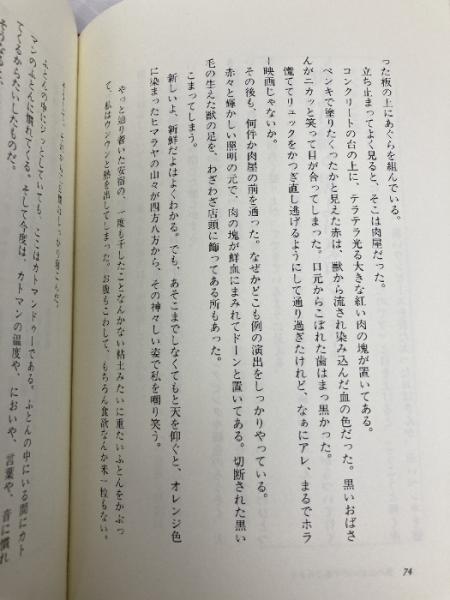 った板の上にあぐらを組んでいる。
立ち止まってよく見ると、そこは肉屋だった。
コンクリートの台の上に、テラテラ光る大きな紅い肉の塊が置いてある。
ペンキで塗りたくったかと見えた赤は、獣から流され染み込んだ血の色だった。黒いおばさ
んがニカッと笑って目が合ってしまった。口元からこぼれた歯はまっ黒かった。
慌ててリュックをかつぎ直し逃げるようにして通り過ぎたけれど、なぁにアレ、まるでホラ
ー映画じゃないか。
その後も、何件か肉屋の前を通った。なぜかどこも例の演出をしっかりやっている。
赤々と輝かしい照明の元で、肉の塊が鮮血にまみれてドーンと置いてある。切断された黒い
毛の生えた獣の足を、わざわざ店頭に飾ってある所もあった。
こまってしまう。
新しいよ、新鮮だよはよくわかる。でも、あそこまでしなくてもと天を仰ぐと、オレンジ色
に染まったヒマラヤの山々が四方八方から、その神々しい姿で私を嘲り笑う。
やっと辿り着いた安宿の、一度も干したことなんかない粘土みたいに重たいふとんをかぶっ
て、私はウンウンと熱を出してしまった。お腹もこわして、もちろん食欲なんか米一粒もない。
74
ふとんの中にじっとしていても、ここはカトマンドゥーである。ふとんの中にいる間にカト
マンのふとんに慣れてくる。そして今度は、カトマンの温度や、においや、言葉や、音に慣れ
てくるからたいしたものだ。